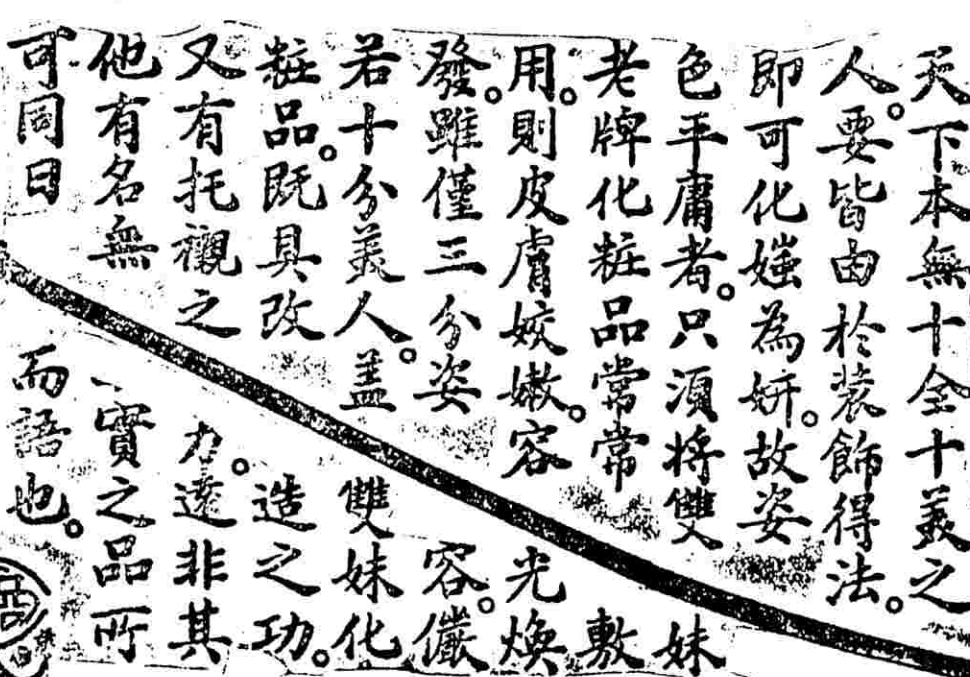 天下本無十全十美之
人。要皆由於裝飾得法。
即可化媸為妍。故姿
色平庸者。只須將雙妹
老牌化粧品常常敷
用。則皮膚姣嫩。容光煥
發。雖僅三分姿容。儼
若十分美人。蓋雙妹化
粧品。既具改造之功。
又有托襯之力。遠非其
他有名無實之品所
可同日而語也。